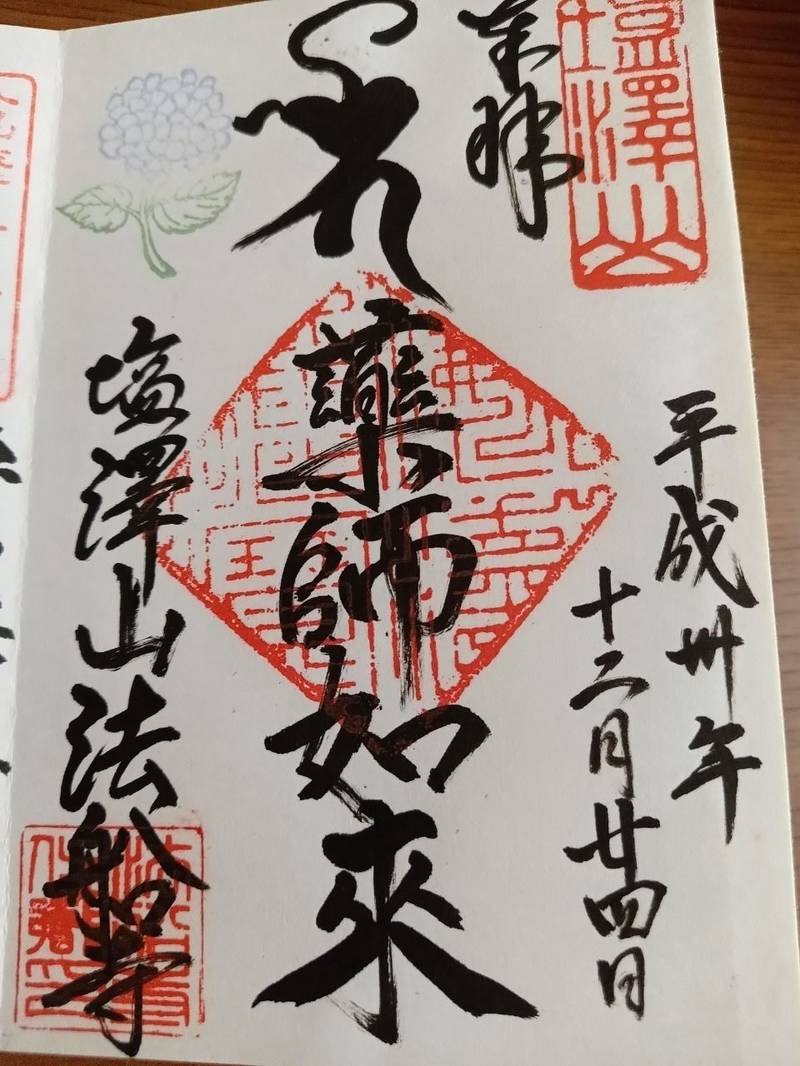 塩澤山
奉拝
平成卅年
十二月廿四日
薬師如來
塩澤山法船寺